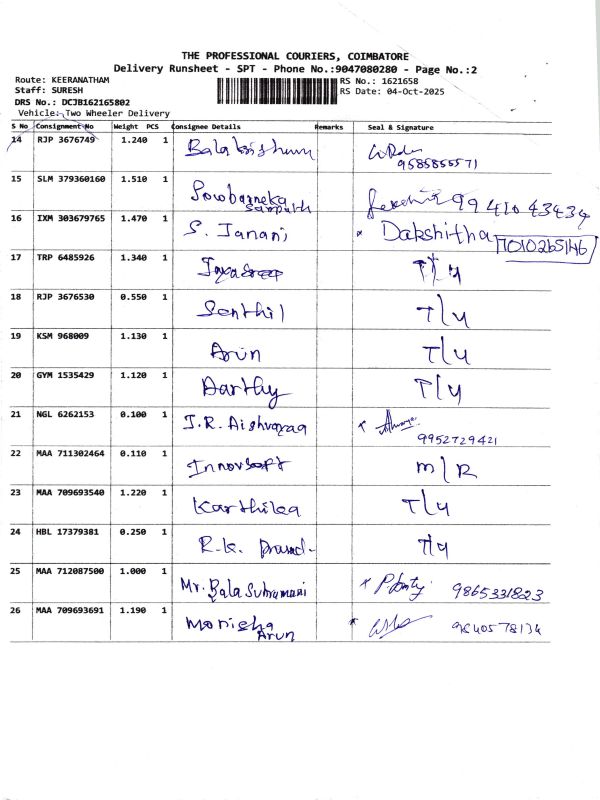 THE PROFESSIONAL COURIERS, COIMBATORE
Delivery Runsheet - SPT - Phone No.:9047080280 - Page No.:2
Route: KEERANATHAM
Staff: SURESH
DRS No.: DCJB162165802
Vehicle: Two Wheeler Delivery
RS No.: 1621658
RS Date: 04-Oct-2025
S No Consignment No Weight PCS Consignee Details Remarks Seal & Signature
14 RJP 3676749 1.240 1 9585855571
15 SLM 379360160 1.510 1 Sowbarneka Sampath 99 410 43434
16 IXM 303679765 1.470 1 S. Janani Dakshitha 7010265146
17 TRP 6485926 1.340 1 T/y
18 RJP 3676530 0.550 1 Senthil T/y
19 KSM 968009 1.130 1 Arun T/y
20 GYM 1535429 1.120 1 Aarthy T/y
21 NGL 6262153 0.100 1 J.R. Aishvaraa 9952729421
22 MAA 711302464 0.110 1 Innovsoft M/R
23 MAA 709693540 1.220 1 Karthika T/y
24 HBL 17379381 0.250 1 R.K. Prasad T/y
25 MAA 712087500 1.000 1 Mr. Bala Subramani 9865331823
26 MAA 709693691 1.190 1 Monisha Arun 9840578134